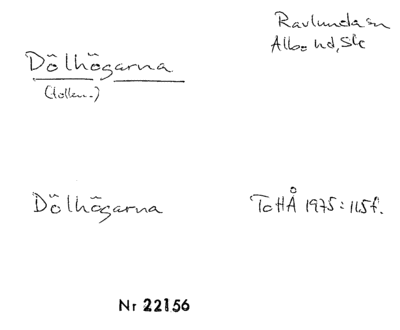 Ravlunda sn
Albo hd, Sk
Dölhögarna
Dölhögarna
ToHÅ 1975: 115f.
Nr 22156